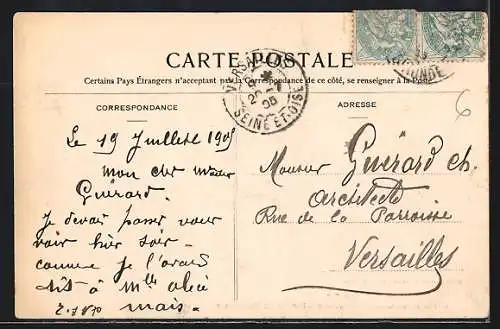 CARTE POSTALE
Certains Pays Étrangers n'acceptant pas la Correspondance de ce côté, se renseigner à la Poste
CORRESPONDANCE
ADRESSE
VERSAILLES
SEINE-ET-OISE
Le 19 Juillet 190
mon cher
Guérard.
Je devais passer vous
voir hier soir -
comme je l'avais
dit à Mlle alice
mais -
Monsieur Guérard
architecte
Rue de la Parroisse
Versailles
6